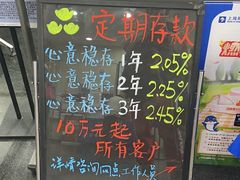 定期存款
心意稳存 1年 2.05%
心意稳存 2年 2.25%
心意稳存 3年 2.45%
10万元起
所有客户
详情咨询网点工作人员